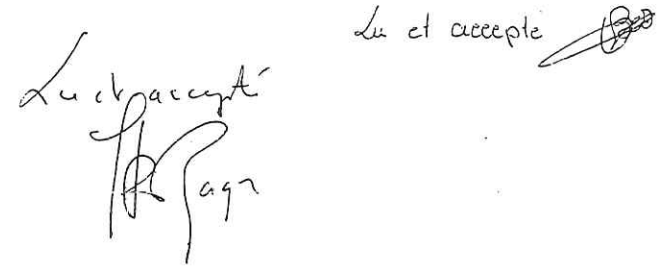 Lu et accepté
Lu et accepté